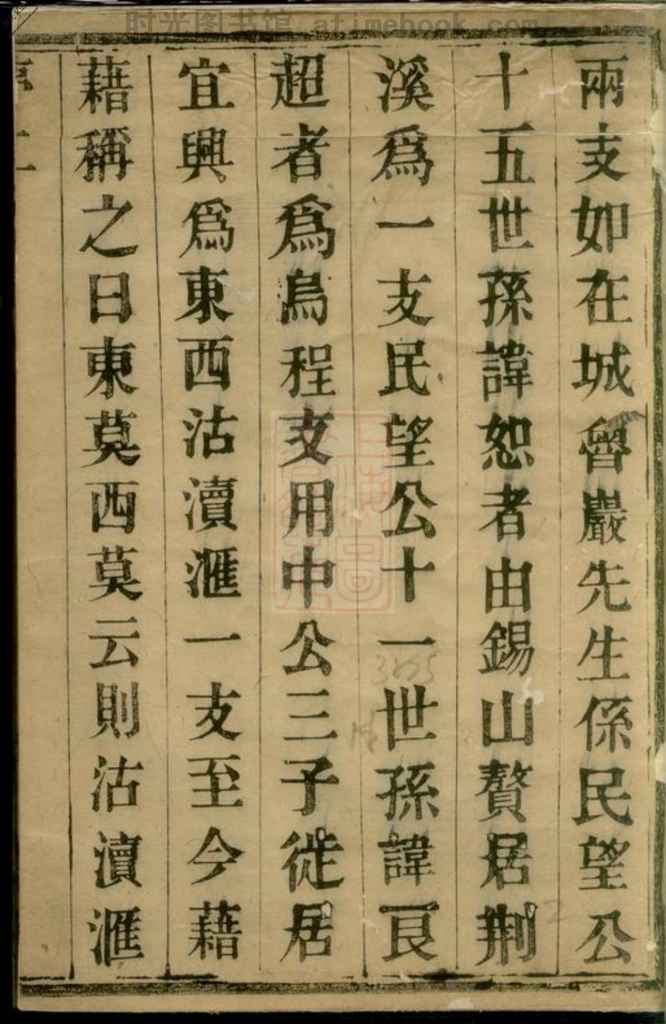 时光图书馆 atimebook.com
兩支如在城魯巖先生係民望公
十五世孫諱恕者由錫山贅居荆
溪爲一支民望公十一世孫諱艮
超者爲烏程支用中公三子徙居
宜興爲東西沽瀆滙一支至今藉
藉稱之曰東莫西莫云則沽瀆滙